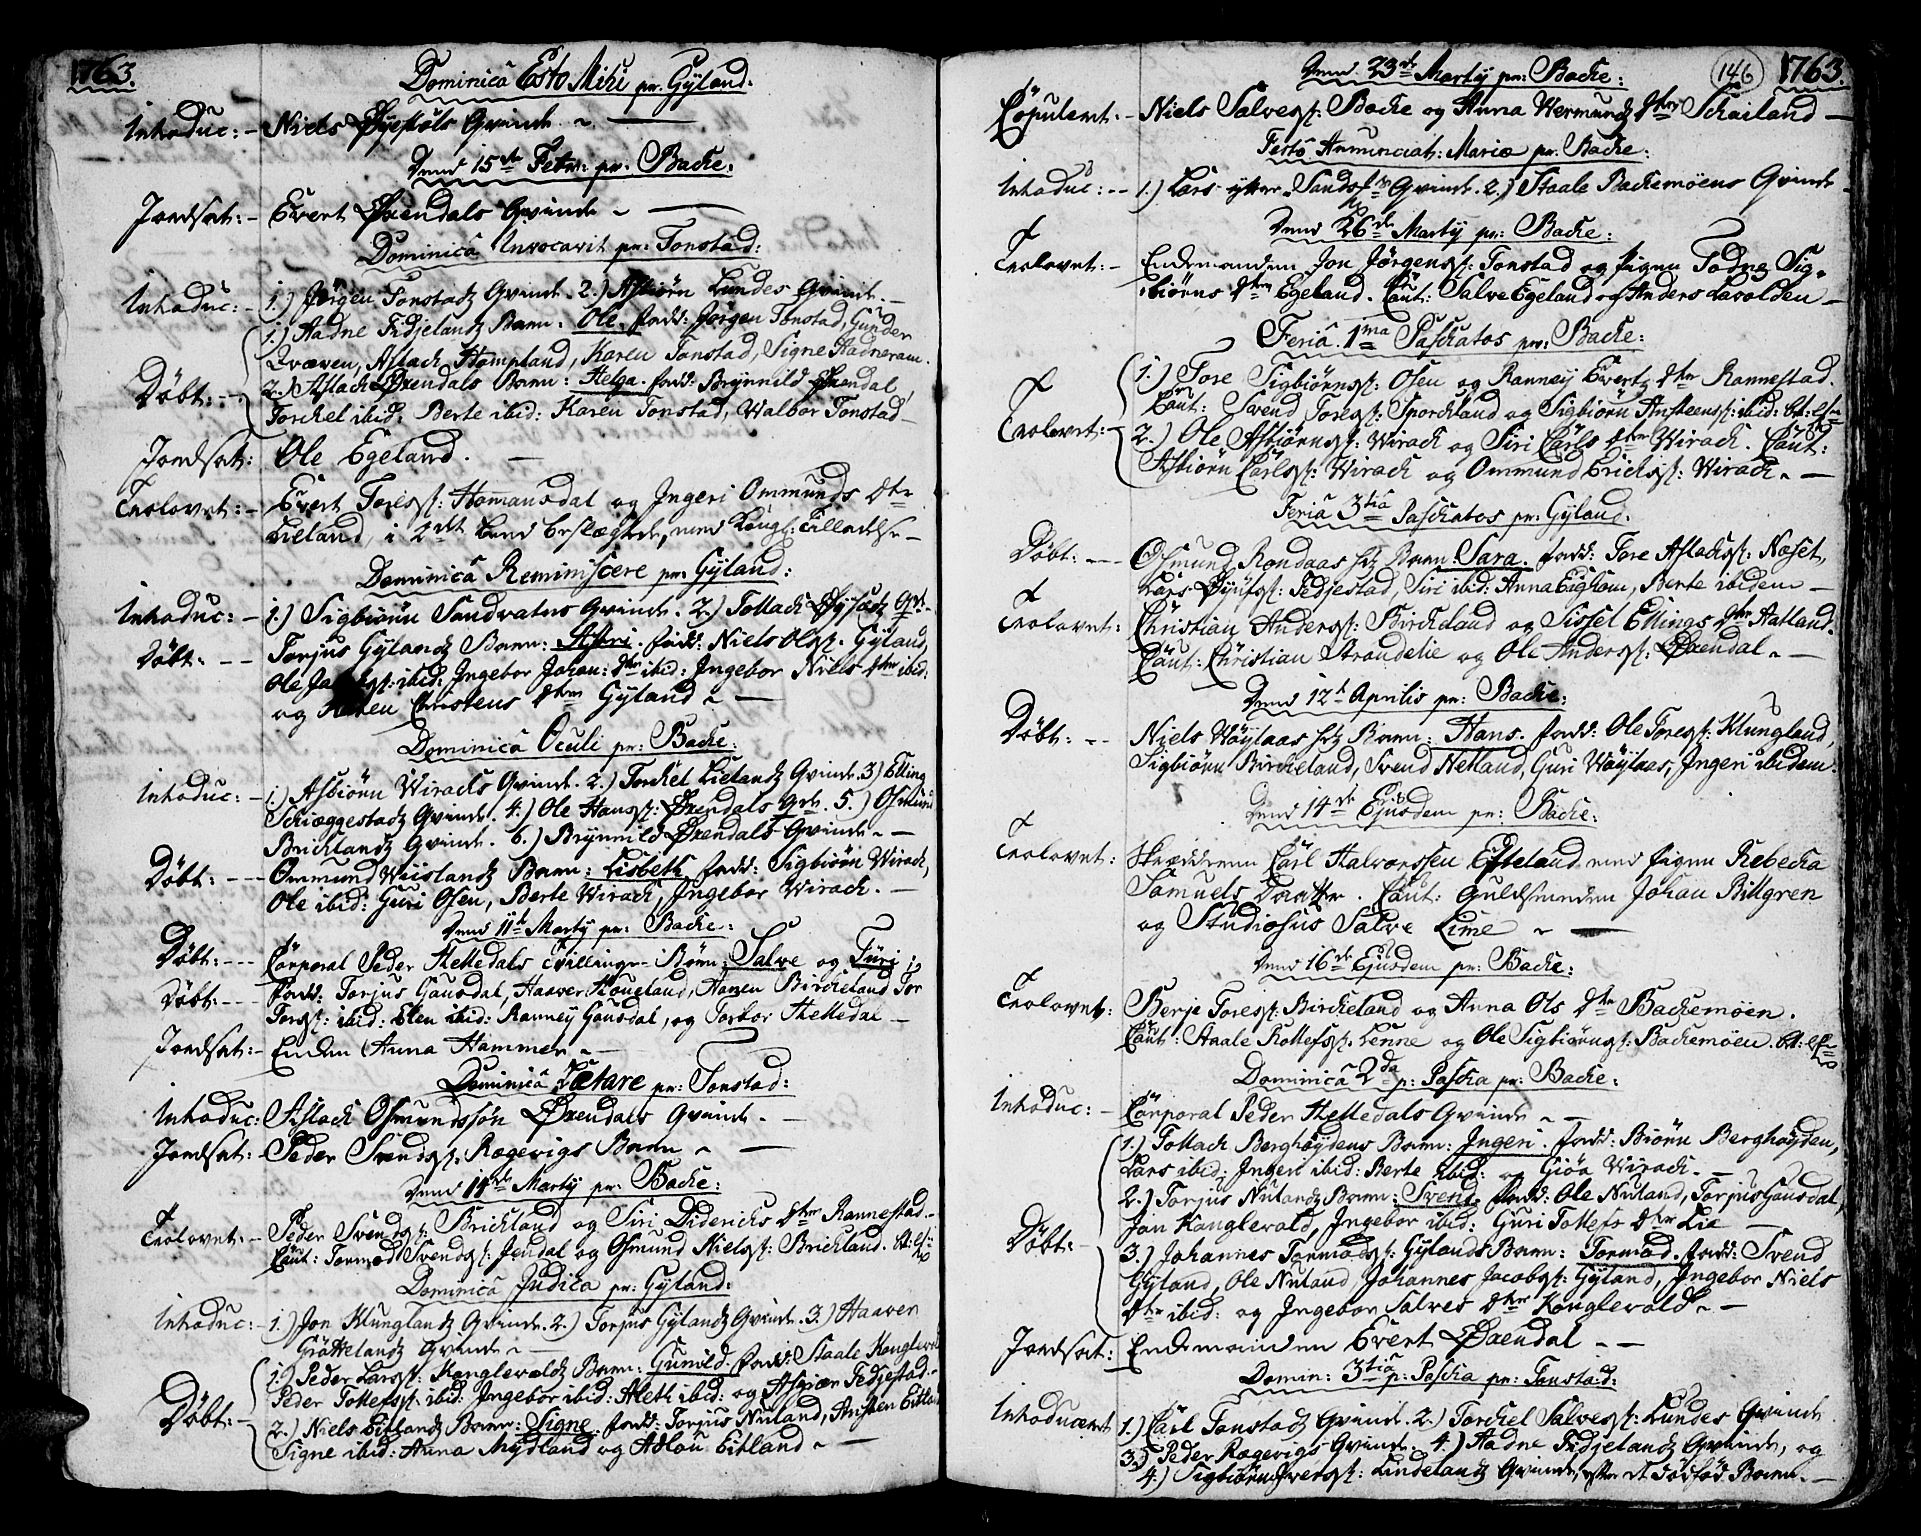 1763.
Dominicâ Esto Mihi pr. Gyland:
Introduc: – Niels Øyestøls Qvinde
Dend 15de Febr: pr. Backe:
Jordsat: – Evert Øxendals Qvinde
Dominicâ Invocavit pr: Tonstad:
Introduc: – 1.) Jørgen Tonstads Qvinde. 2.) Asbiørn Lundes Qvinde. –
1.) Aadne Fidjelands Barn: Ole. fadd: Jørgen Tonstad, Gunder
Qvæven, Aslach Hompland, Karen Tonstad, Signe Aadneram.
Døbt: – 2.) Aslach Øxendals Barn: Helga. fadd: Brynnild Øxendal,
Torchel ibid: Berte ibid: Karen Tonstad, Walbor Tonstad –
Jordsat: Ole Egeland. –
Trolovet: – Evert Toresss: Homansdal og Ingeri Ommunds dtr
Lieland, i 2det Leed beslægtede, med Kongl: Tilladelse –
Dominicâ Reminiscere pr: Gyland:
Introduc: – 1.) Sigbiørn Sandvatns Qvinde. 2.) Tollach Qvinde
Døbt: – – Torjus Gylands Barn: Astri. fadd: Niels Olss: Gyland,
Ole ibid: Ingebor Johan: dtr ibid: Ingebor Niels dtr ibid:
og Christens dtr Gyland –
Dominicâ Oculi pr: Backe:
Introduc: – 1.) Asbiørn Wirachs Qvinde. 2.) Torchel Lielands Qvinde. 3.) Elling
Schieggestads Qvinde. 4.) Ole Hanss: Øxendals Qde. 5.) Osmund
Bricklands Qvinde. 6.) Brynnild Øxendals Qvinde –
Døbt: – – Ommund Wiislands Barn: Lisbeth. fadd: Sigbiørn Wirach,
Ole ibid: Guri Osen, Berte Wirach, Ingebor Wirach. –
Dend 11te Marty pr: Backe:
Døbt: – – – Corporal Peder Helledals Tvillinge-Børn: Salve og Turi:
Døbt: – – – fadd: Torjus Gausdal, Haaver Moueland, Hanen Birckeland Tor
Torss: ibid: Elen ibid: Ranney Gausdal, og Torbor Helledal –
Jordsat: – Enken Anna Hammer –
Dominicâ Lætare pr: Tonstad:
Introduc: Aslach Osmundssøn Øxendals Qvinde. –
Jordsat: – Peder Svends: Rægevigs Barn –
Dend 14de Marty pr: Backe:
Trolovet: – Peder Svends: Brickland og Siri Didericks dtr Rannestad.
Caut: Tormod Svends: Jendal og Osmund Niels: Brickland.
Dominicâ Judica pr: Gyland:
Introduc: – 1.) Jon Klunglands Qvinde. 2.) Torjus Gylands Qvinde. 3.) Haaver
Grøttelands Qvinde –
1.) Peder Larss: Konglevolds Barn: Gunild. fadd: Staale Konglevold
Peder Tollefss: ibid: Ingebor ibid: Aleth ibid: og Asgier Fedjestad. –
Døbt: – 2.) Niels Eitlands Barn: Signe. fadd: Torjus Nuland, Ansten Eitland
Signe ibid: Anna Mydland og Adlou Eitland –
146
1763.
Dend 23de Marty pr: Backe:
Copuleret: – Niels Salvess: Backe og Anna Wermunds dtr Schailand –
Festo Annunciat: Mariæ pr: Backe:
Introduc: – – 1.) Lars ytter Qvinde. 2.) Staale Backemoens Qvinde
Dend 26de Marty pr: Backe:
Trolovet: – Enkemanden Jon Jørgenss: Tonstad og Pigen Todne Sig-
biørns dtr Egeland. Caut: Salve Egeland og Anders Lavolden –
Feriâ 1ma Paschatos pr: Backe:
1.) Tore Sigbiørnss: Osen og Ranney Everts dtr Rannestad.
Caut: Svend Toress: Snorckland og Sigbiørn Anstenss: ibid:
Trolovet: – 2.) Ole Asbiørnss: Wirach og Siri Carls dtr Wirach. Caut:
Asbiørn Carlss: Wirach og Ommund Erichss: Wirach –
Feriâ 3tiâ Paschatos pr: Gyland.
Døbt: – – Osmund Rondaas hs Barn Sara. fadd: Tore Aslachss: Næset,
Lars Fedjestad, Siri ibid: Anna Eighom, Berte ibidem –
Trolovet: Christian Anderss: Birckeland og Sissel Ellings dtr Aatland.
Caut: Christian Strandelie og Ole Anderss: Øxendal –
Dend 12te Aprilis pr: Backe:
Døbt: – – Niels Høylaas hs Barn: Hans. fadd: Ole Toress: Klungland,
Sigbiørn Birckeland, Svend Netland, Guri Høylaas, Ingeri ibidem.
Dend 14de Ejusdem pr: Backe:
Trolovet: Skrædderen Carl Halvorssen Efteland med Pigen Rebecka
Samuels Daatter. Caut: Guldsmeden Johan Billgren
og Studiosus Salve Lime –
Dend 16de Ejusdem pr: Backe:
Trolovet: Berje Toress: Birckeland og Anna Ols dtr Backemoen.
Caut: Staale Rollefss: Lenne og Ole Sigbiørnss: Backemoen.
Dominicâ 2da p: Pascha pr: Backe:
Introduc: – Corporal Peder Helledals Qvinde –
1.) Tollach Berghøydens Barn: Ingeri. fadd: Biørn Berghøyden,
Lars ibid: Ingeri ibid: Berte ibid: og Giøa Wirach. –
2.) Torjus Nulands Barn: Svend. fadd: Ole Nuland, Torjus Gausdal,
Jon Konglevold, Ingebor ibid: Guri Tollefs dtr Lie –
Døbt: – 3.) Johannes Tormods: Gylands Barn: Tormod. fadd: Svend
Gyland, Ole Nuland, Johannes Jacobss: Gyland, Ingebor Niels
dtr ibid: og Ingebor Salves dtr Konglevold –
Jordsat: Enkemanden Evert Øxendal –
Domin: 3tiâ p: Pascha pr: Tonstad:
Introduceret 1.) Carl Tonstads Qvinde. 2.) Torchel Salvess: Lundes Qvinde.
3.) Peder Rægevigs Qvinde. 4.) Aadne Fidjelands Qvinde, og
4.) Sigbiørn Iverss: Lindelands Qvinde, efter et dødfød Barn. –